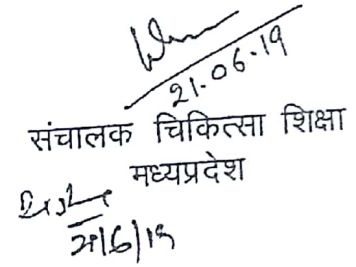 21.06.19
संचालक चिकित्सा शिक्षा
मध्यप्रदेश